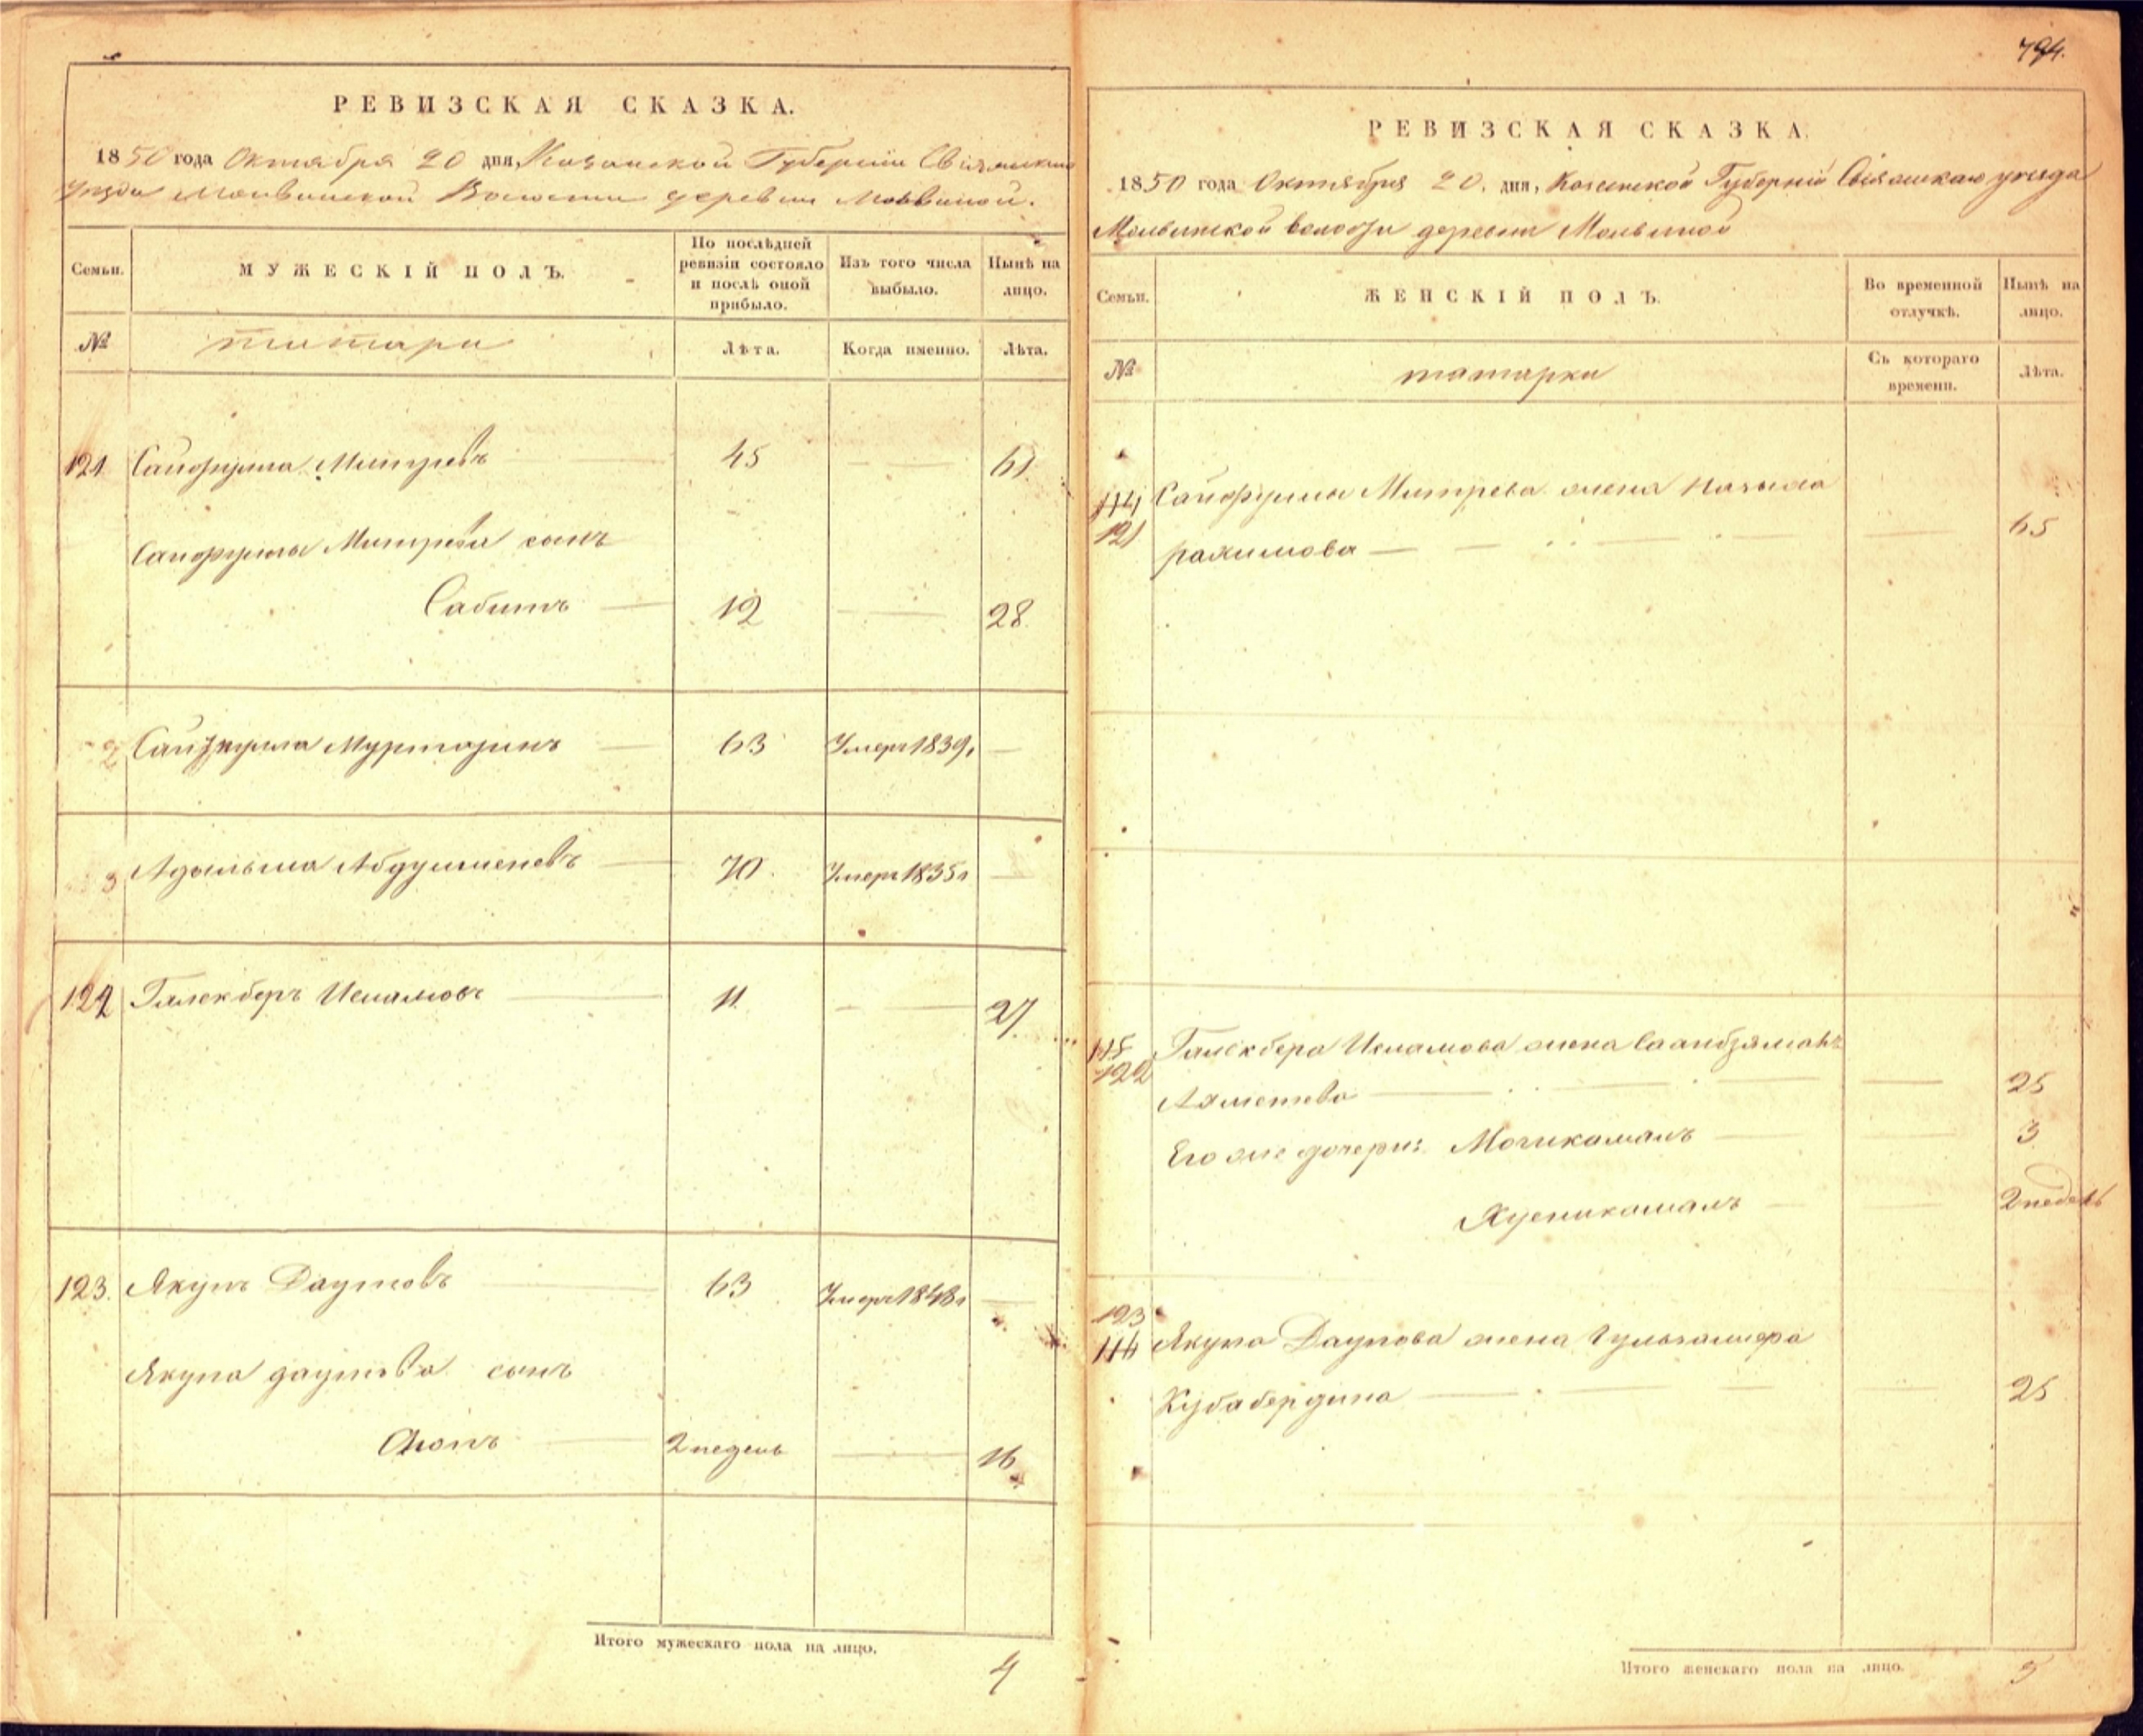 794.
РЕВИЗСКАЯ СКАЗКА.
1850 года Октября 20 дня, Казанской Губернии Свіяжскаго
Уезда Молвинской Волости деревни Молвиной.
Семьи.
МУЖЕСКІЙ ПОЛЪ.
По послѣдней
ревизіи состояло
и послѣ оной
прибыло.
Изъ того числа
выбыло.
Нынѣ на
лицо.
№
татары
Лѣта.
Когда именно.
Лѣта.
121 Сайфулла Митревъ 45 — 61
Сайфуллы Митрева сынъ
Сабитъ 12 — 28
2 Муртазинъ 63 Умеръ 1839. —
3 70 Умеръ 1835г —
122 Галекберъ Исламовъ 11 — 27
123. Якупъ Даутовъ 63 Умеръ 1848г —
Якупа даутова сынъ
Аюпъ 2 недель — 16
Итого мужескаго пола на лицо.
4
РЕВИЗСКАЯ СКАЗКА.
1850 года Октября 20. дня, Казанской Губерніи Свіяжскаго уезда
Молвинской волости деревни Молвиной
Семьи.
ЖЕНСКІЙ ПОЛЪ.
Во временной
отлучкѣ.
Нынѣ на
лицо.
№
татарки
Съ котораго
времени.
Лѣта.
114 Сайфуллы Митрева жена
121 рахимова — — 65
115 Галекбера Исламова жена
122 Ахметева — — 25
Его же дочери: — 3
Хусникамалъ — 2 недель
123
116 Якупа Даутова жена
Кубабердина — — 25
Итого женскаго пола на лицо.
5